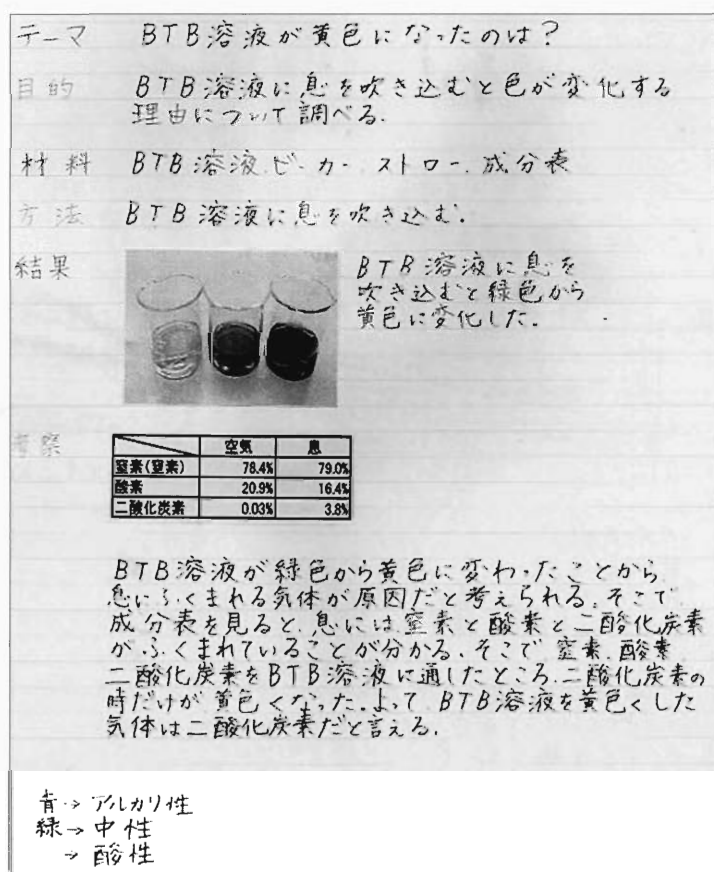 テーマ BTB溶液が黄色になったのは？
目的 BTB溶液に息を吹き込むと色が変化する
理由について調べる.
材料 BTB溶液.ビーカー.ストロー.成分表
方法 BTB溶液に息を吹き込む.
結果 BTB溶液に息を
吹き込むと緑色から
黄色に変化した.
考察
空気 息
窒素(窒素) 78.4% 79.0%
酸素 20.9% 16.4%
二酸化炭素 0.03% 3.8%
BTB溶液が緑色から黄色に変わったことから
息にふくまれる気体が原因だと考えられる.そこで
成分表を見ると.息には窒素と酸素と二酸化炭素
がふくまれていることが分かる.そこで窒素.酸素
二酸化炭素をBTB溶液に通したところ.二酸化炭素の
時だけが黄色くなった.よって BTB溶液を黄色くした
気体は二酸化炭素だと言える.
青→アルカリ性
緑→中性
→酸性